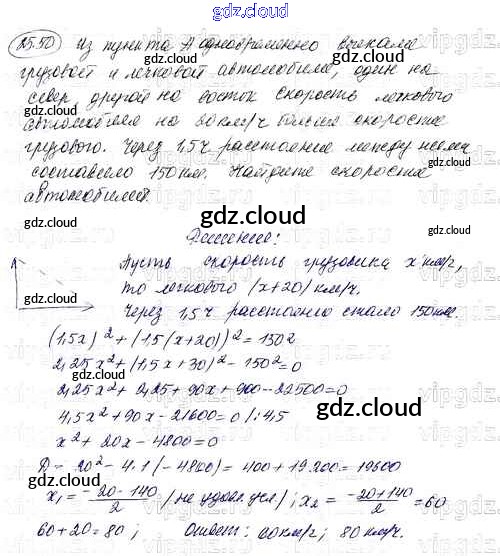 gdz.cloud
25.50 Из пункта А одновременно выехали
грузовой и легковой автомобили, один на
север другой на восток скорость легкового
автомобиля на 20 км/ч больше скорости
грузового. Через 1,5 ч расстояние между ними
составляло 150 км. Найдите скорости
автомобилей.
gdz.cloud
Решение:
Пусть скорость грузовика x км/ч,
то легкового (x+20) км/ч.
Через 1,5 ч расстояние стало 150 км.
(1,5x)² + (1,5(x+20))² = 150²
2,25x² + (1,5x+30)² - 150² = 0
2,25x² + 2,25 + 90x + 900 - 22500 = 0
4,5x² + 90x - 21600 = 0 /: 4,5
x² + 20x - 4800 = 0
D = 20² - 4·1(-4800) = 400 + 19200 = 19600
x₁ = -20-140/2 /не удов. усл/; x₂ = -20+140/2 = 60
60+20 = 80; Ответ: 60 км/ч; 80 км/ч.
gdz.cloud